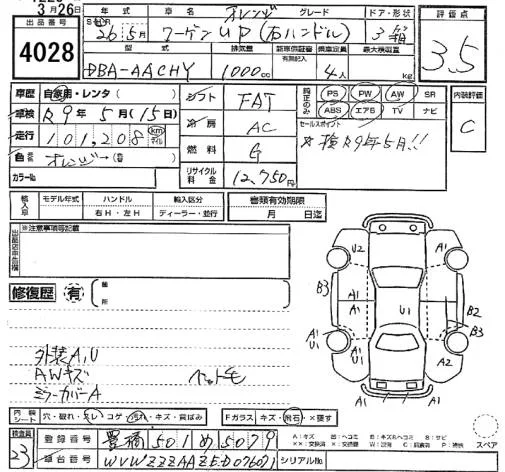 3月26日
出品番号
4028
年式
車名
グレード
ドア・形状
評価点
26年5月
オレンジ
ワーゲン UP (右ハンドル)
3
3.5
型式
排気量
新車保証書
乗車定員
最大積載量
有無記入
DBA-AACHY
1000cc
4人
kg
車歴
自家用・レンタ
シフト
FAT
純正のみ
PS
PW
AW
SR
ABS
エアB
TV
ナビ
内装評価
C
車検
R9年5月(15日)
冷房
AC
セールスポイント
※検R9年5月!!
走行
101,208
km
マイル
燃料
G
色
オレンジ→(春)
リサイクル料金
12,750円
カラーNo.
輸入車
モデル年式
ハンドル
輸入区分
書類有効期限
右H・左H
ディーラー・並行
月 日迄
※注意事項等記載
修復歴
有
箇所
U2
A1
A1
B3
A1
A1
U1
B2
B3
A1
A1
U1
A1
U1
A2
A1
外装A,U
AWキズ
ペット毛
ミラーカバーA
内装シート
穴・破れ・スレ・コゲ・汚れ・キズ・黄ばみ
Fガラス
キズ・飛石・×要す
検査員
23
登録番号
豊橋 501 め 5079
車台番号
シリアルNo.
A:キズ
U:ヘコミ
B:キズ&ヘコミ
S:サビ
スペア